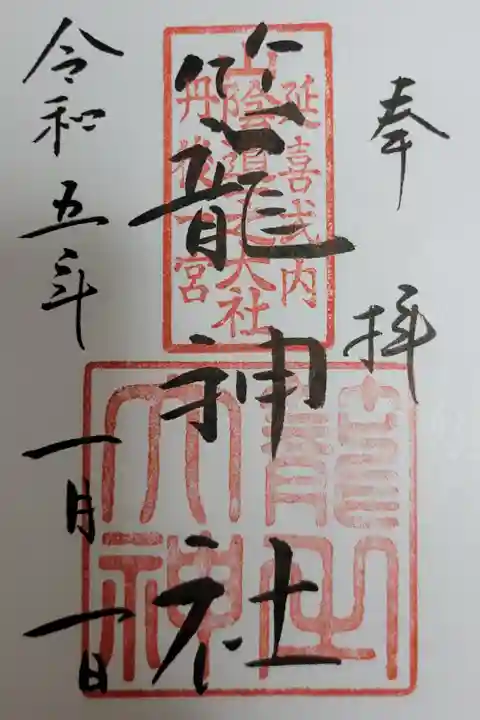 奉拝
籠神社
令和五年一月一日
延喜式内
山陰隠之大社
丹後一宮
籠之大神